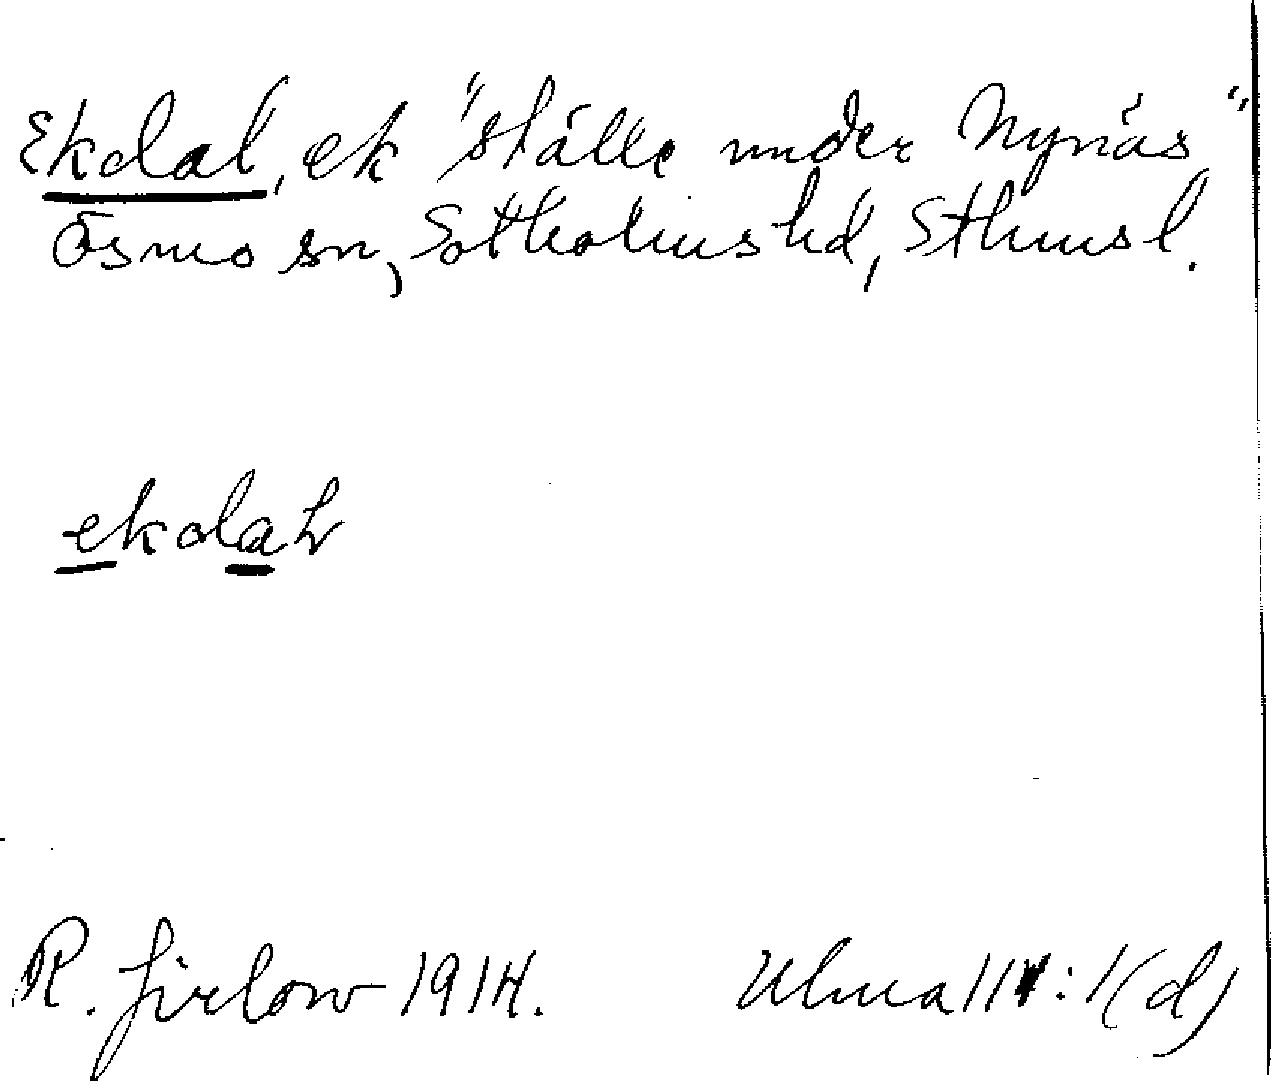 Ekdal, ek "ställe under Nynäs"
Ösmo sn, Sotholms hd, Sthmsl.
R. Jirlow 1914.
Ulma 111:1(d)